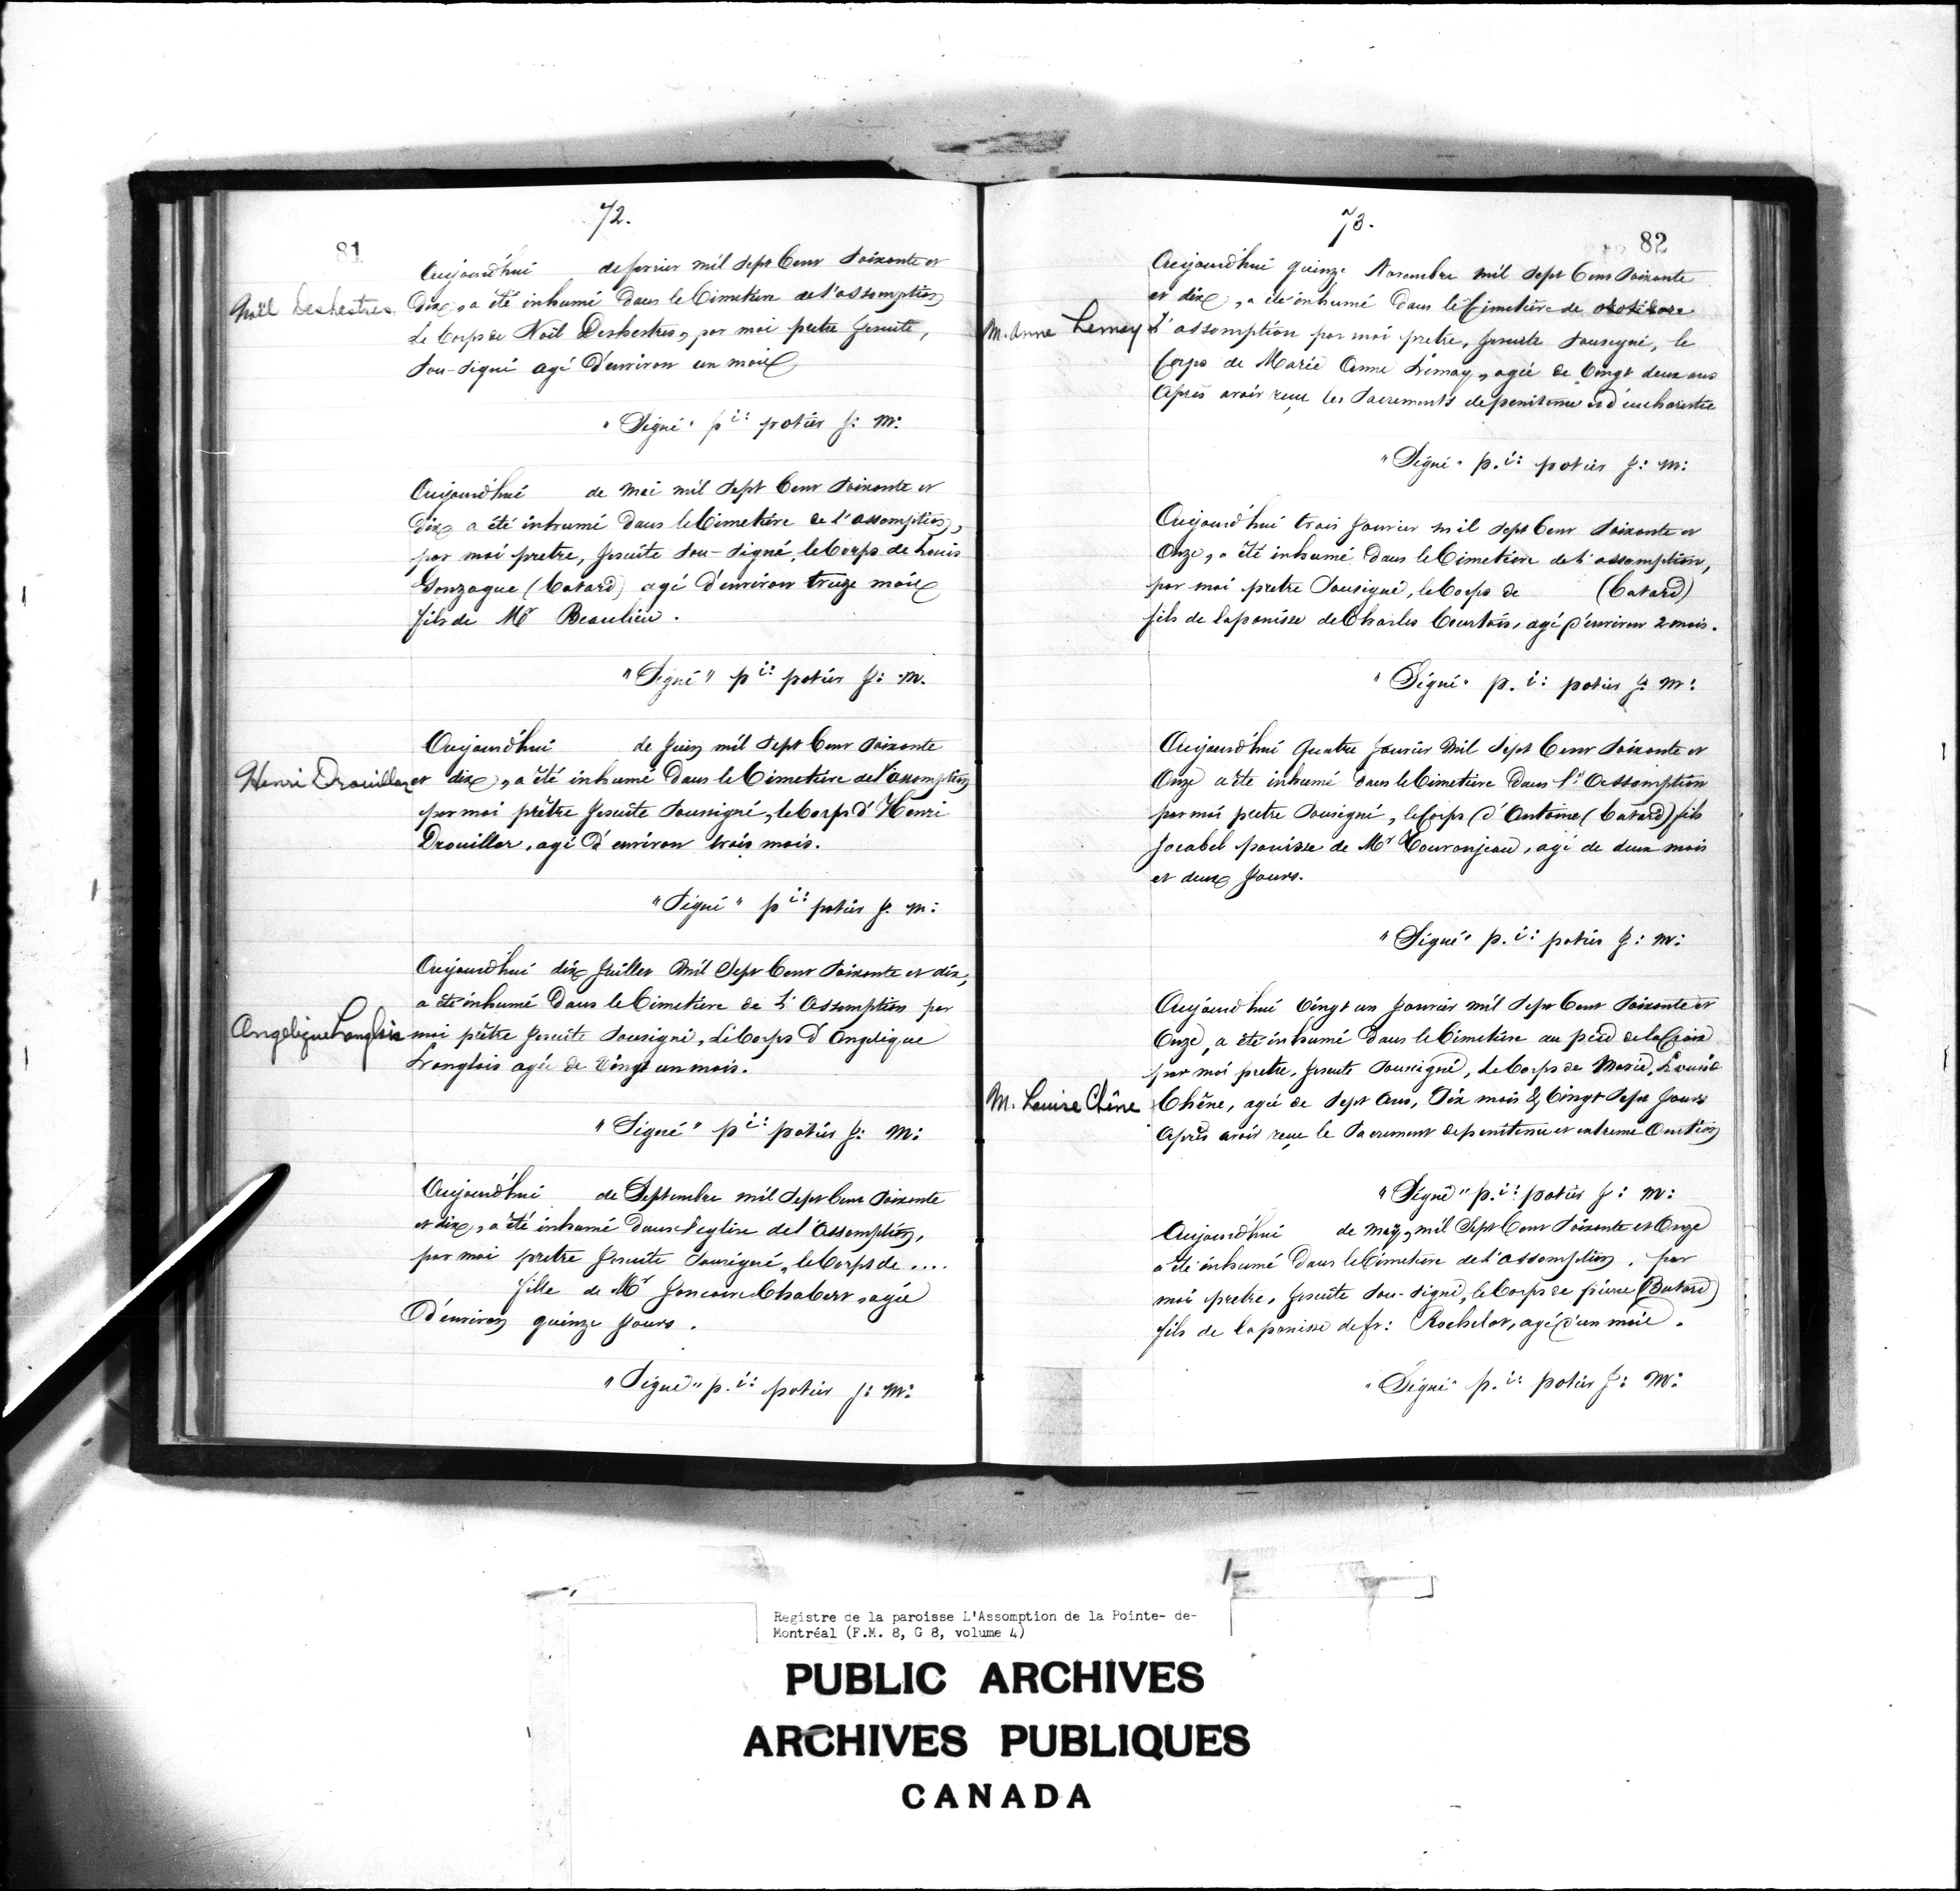 72.
81
Aujourd'hui de fevrier mil sept Cent soixante et
Noël Deshestres
Dix, a été inhumé dans le Cimetière de l'assomption
Le Corps de Noël Deshestres, par moi pretre Jesuite,
Sou-signé agé d'environ un mois
"Signé" p i: potier J: M:
Aujourd'hui de mai mil sept Cent soixante et
Dix, a été inhumé dans le Cimetière de l'assomption,
par moi pretre, Jesuite sou-signé, le Corps de Louis
Gonzague (Batard) agé d'environ treize mois
fils de Mr Beaulieu.
"Signé" p i: potier J: M.
Aujourd'hui de Juin mil sept Cent soixante
Henri Drouillar
et dix, a été inhumé dans le Cimetière de l'assomption
par moi prêtre Jesuite soussigné, le Corps d'Henri
Drouillar, agé d'environ trois mois.
"Signé" p i: potier J. M:
Aujourd'hui dix Juillet Mil Sept Cent soixante et dix,
a été inhumé dans le Cimetière de L'Assomption par
Angelique Langlois
moi prêtre Jesuite sousigné, Le Corps d'Angelique
Langlois agée de Vingt un mois.
"Signé" p i: potier J: M:
Aujourd'hui de Septembre mil sept Cent soixante
et dix, a été inhumé dans l'eglise de l'Assomption,
par moi pretre Jesuite sousigné, le Corps de ....
fille de Mr Joncaire Chabert, agée
D'environ quinze Jours.
"Signé" p. i: potier J: M:
73.
82
Aujourd'hui quinze Novembre mil sept Cent soixante
et dix, a été inhumé dans le Cimetière de
M. Anne Lemay
L'assomption par moi pretre, Jesuite sousigné, le
Corps de Marie Anne Lémay, agée de Vingt deux ans
Après avoir reçue les sacrements de penitence et d'eucharistie
"Signé" p. i: potier J: M:
Aujourd'hui trois Janvier mil sept Cent soixante et
Onze, a été inhumé dans le Cimetière de l'assomption,
par moi pretre sousigné, le Corps de (Batard)
fils de la panisse de Charles Courtois, agé d'environ 2 mois.
"Signé" p. i: potier J: M:
Aujourd'hui Quatre Janvier Mil Sept Cent soixante et
Onze a été inhumé dans le Cimetière dans l'Assomption
par moi pretre sousigné, le Corps (d'Antoine (Batard) fils
Jacabel panisse de Mr Touronjeau, agé de deux mois
et deux Jours.
"Signé" p. i: potier J: M:
Aujourd'hui Vingt un Janvier mil sept Cent soixante et
Onze, a été inhumé dans le Cimetière au pied de la Croix
par moi pretre, Jesuite soussigné, Le Corps de Marie, Louise
M. Louise Chêne
Chêne, agée de sept Ans, Dix mois & Vingt sept Jours
Après avoir reçue le sacrement de penitence et extreme Onction
"Signé" p. i: potier J: M:
Aujourd'hui de may, mil Sept Cent soixante et Onze
a été inhumé dans le Cimetière de l'assomption, par
moi pretre, Jesuite sou-signé, le Corps de pierre (Batard)
fils de la panisse de fr: Rochelot, agé d'un mois.
"Signé" p. i: potier J: M:
Registre de la paroisse L'Assomption de la Pointe- de-
Montréal (F.M. 8, G 8, volume 4)
PUBLIC ARCHIVES
ARCHIVES PUBLIQUES
CANADA